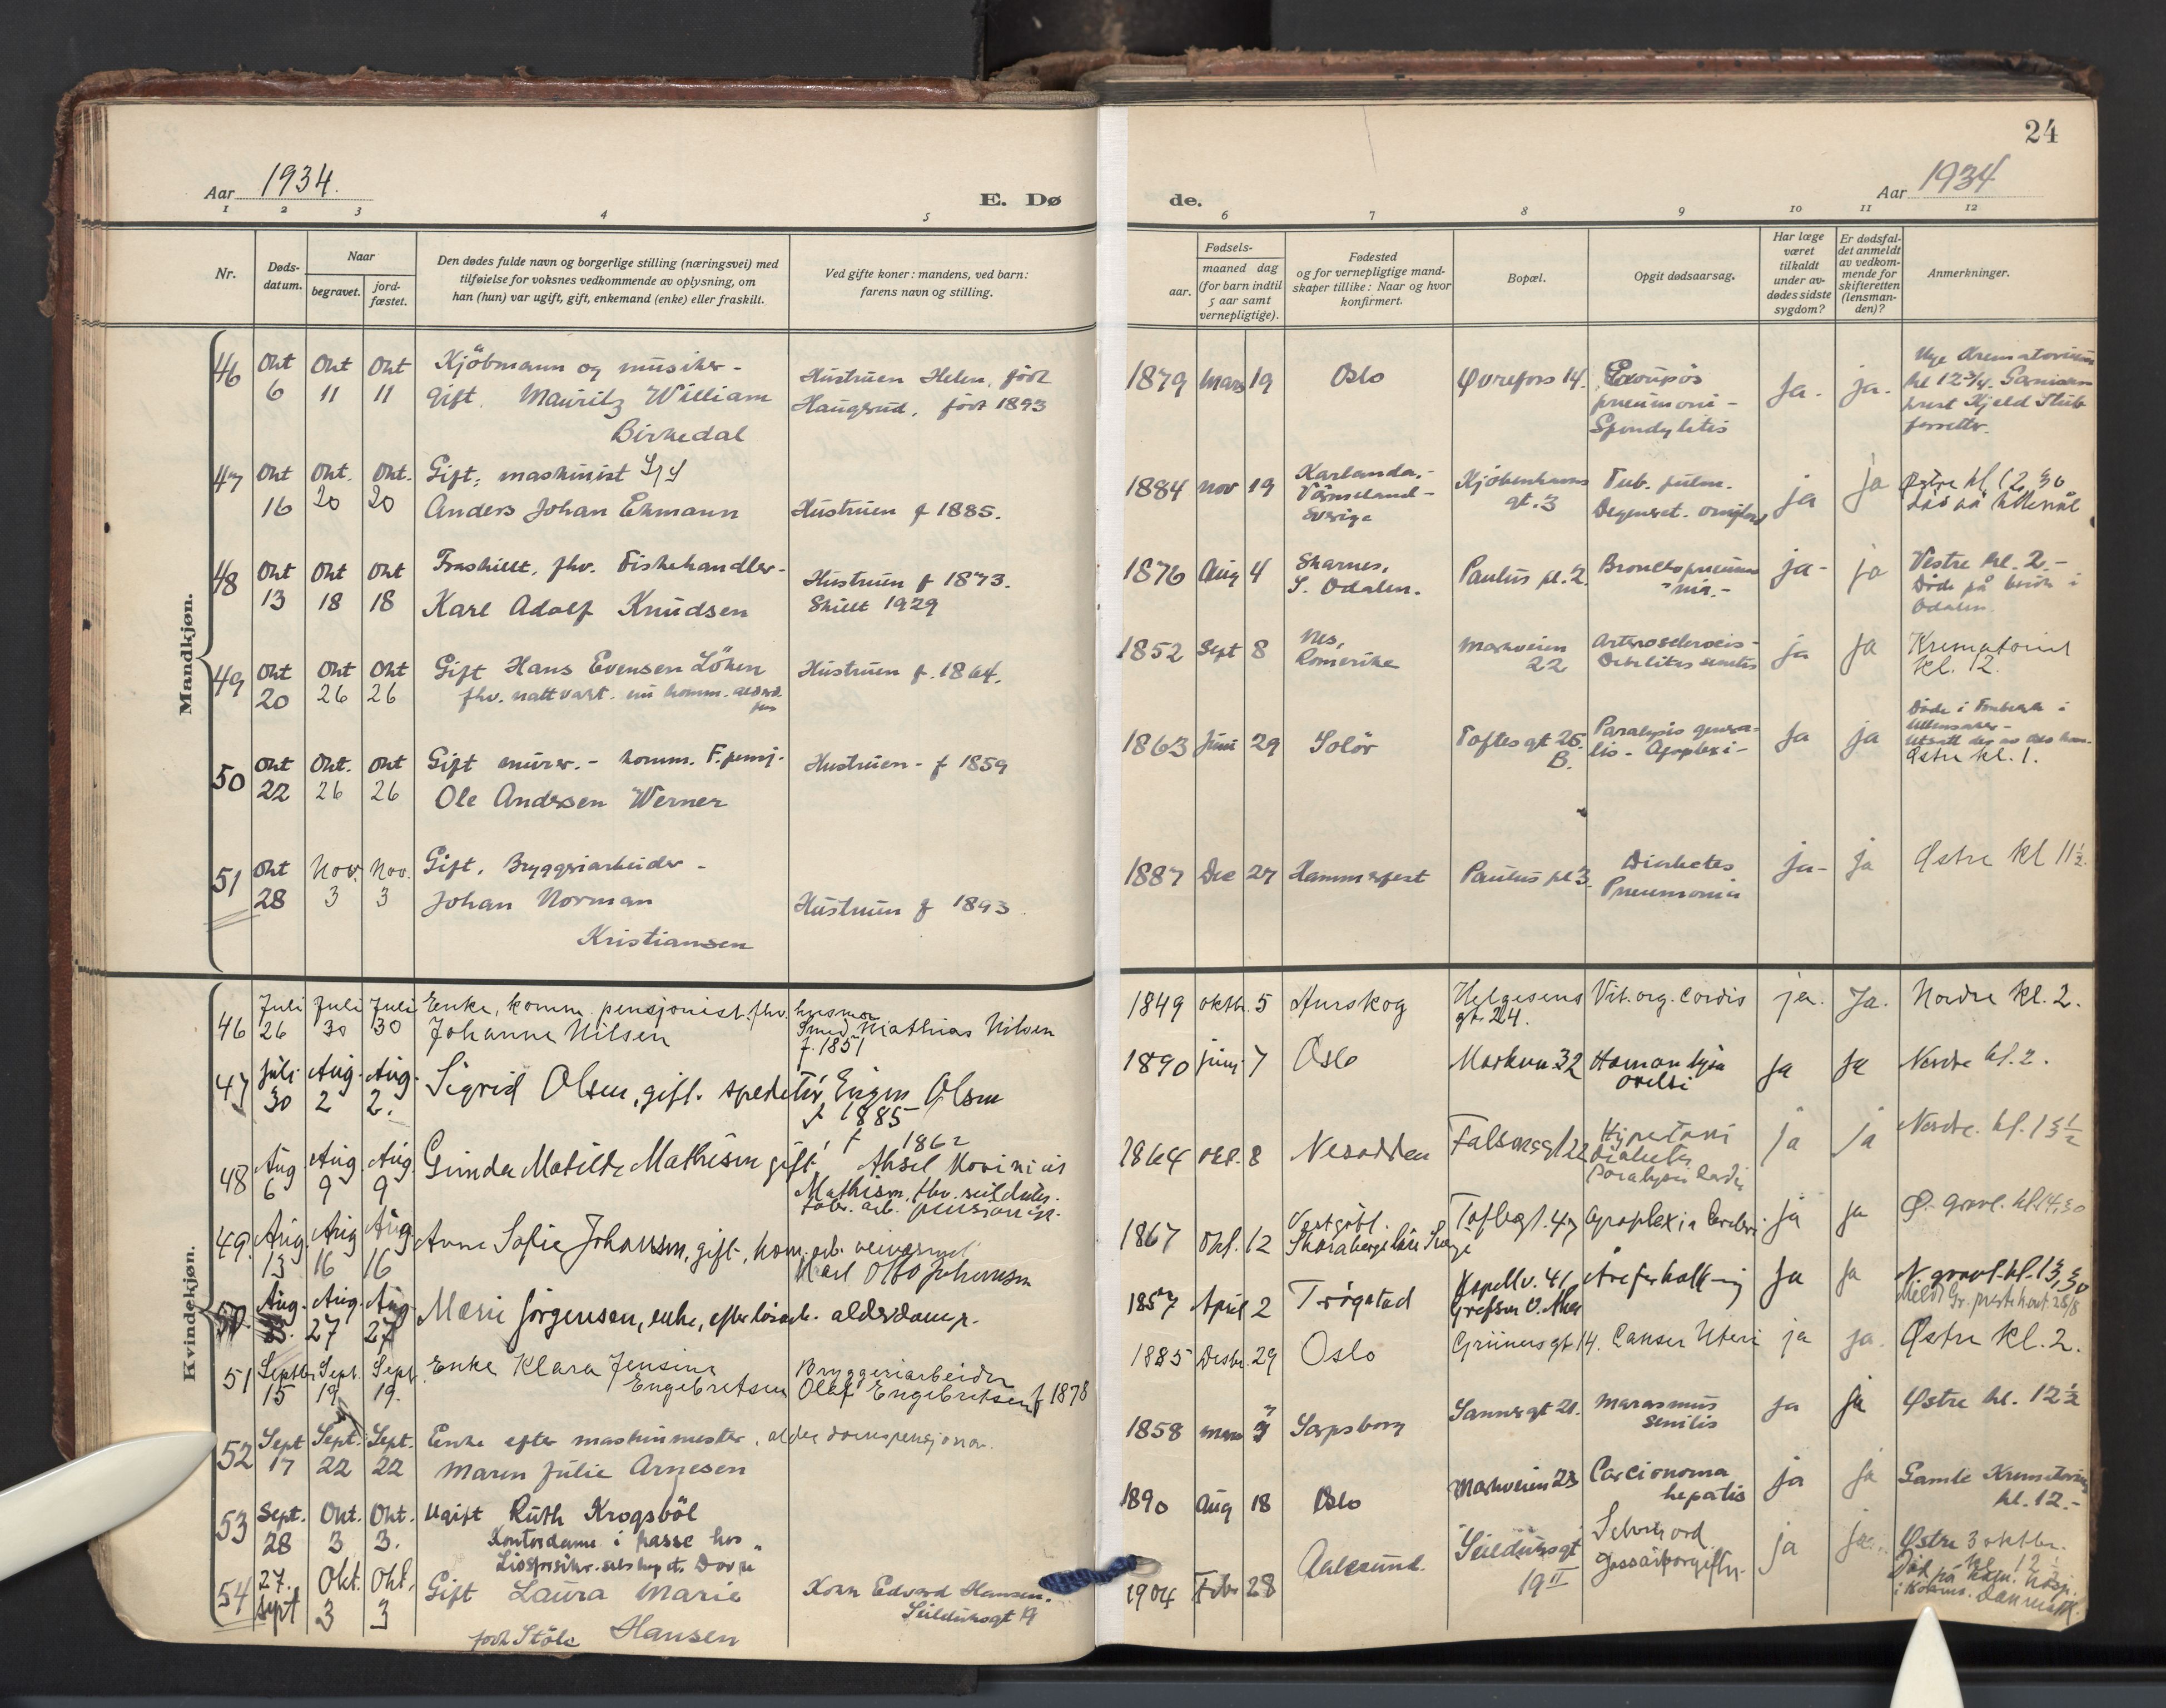 24
Aar 1934.
E. Dø
de.
Aar 1934
1 2 3 4 5 6 7 8 9 10 11 12
Nr.
Døds-
datum.
Naar
begravet.
jord-
fæstet.
Den dødes fulde navn og borgerlige stilling (næringsvei) med
tilføielse for voksnes vedkommende av oplysning, om
han (hun) var ugift, gift, enkemand (enke) eller fraskilt.
Ved gifte koner: mandens, ved barn:
farens navn og stilling.
Fødsels-
aar.
maaned dag
(for barn indtil
5 aar samt
vernepligtige).
Fødested
og for vernepligtige mand-
skaper tillike: Naar og hvor
konfirmert.
Bopæl.
Opgit dødsaarsag.
Har læge
været
tilkaldt
under av-
dødes sidste
sygdom?
Er dødsfal-
det anmeldt
av vedkom-
mende for
skifteretten
(lensman-
den)?
Anmerkninger.
Mandkjøn.
46 Okt 6 Okt 11 Okt 11
Kjöbmann og musiker -
Gift. Mauritz William
Birkedal
Hustruen Helen, född
Haugsrud, född 1893
1879 Mars 19 Oslo Øvrefoss 14.
pneumoni -
Spondylitis
Ja. ja.
Nye Krematorium
kl 12 3/4.
prest Kjeld Stub
forretter.
47 Okt 16 Okt. 20 Okt. 20
Gift, maskinist
Anders Johan Ekmann
Hustruen f 1885.
1884 Nov 19
Karlanda,-
Värmeland-
Sverige
Kjöbenhavns
gt. 3
Tub. pulm.
ja ja
Østre kl. 12,30
48 Okt 13 Okt 18 Okt 18
Fraskilt, fhv. Fiskehandler-
Karl Adolf Knudsen
Hustruen f 1873.
Skilt 1929
1876 Aug 4
Skarnes,
S. Odalen.
Paulus pl. 2.
Bronchopneumo
nia.-
ja- ja
Vestre kl. 2.-
Döde på besök i
Odalen.
49 Okt 20 Okt 26 Okt 26
Gift Hans Evensen Löken
fhv. nattvakt. nu komm.
Hustruen f. 1864.
1852 Sept 8
Nes,
Romerike
Markveien
22
Arteriosclerosis-
Debilitas senilis
ja ja
Krematoriet
kl. 12.
50 Okt 22 Okt. 26 Okt 26
Gift murer. - komm. F.pensj.
Ole Andersen Werner
Hustruen - f 1859
1863 Juni 29 Solör
Toftes gt 26.
B.
Paralysis genera-
lis - Apoplexi-
Ja ja
Döde i
Ullensaker-
Østre kl. 1.
51 Okt 28 Nov. 3 Nov. 3
Gift, Bryggeriarbeider -
Johan Norman
Kristiansen
Hustruen f 1893.
1887 Des 27 Hammerfest Paulus pl 3.
Diabetes
Pneumonia
ja- ja
Østre kl 11 1/2.
Kvindekjøn.
46 Juli 26 Juli 30 Juli 30
Enke, komm. pensjonist. fhv.
Johanne Nilsen
Smed Mathias Nilsen
f. 1851
1849 oktb. 5 Aurskog
Helgesens
gt. 24.
Vit. org. cordis
ja. Ja.
Nordre kl. 2.
47 juli 30 Aug. 2 Aug. 2.
Sigrid Olsen, gift. speditör Eugen Olsen
f 1885
1890 juni 7 Oslo Markvn 32
ja ja
Nordre kl. 2.
48 Aug 6 Aug. 9 Aug. 9
Gunda Matilde Mathisen gift,
f 1862
Mathisen, fhv. seilduks.
fabr. arb. pensionist.
1864 okt. 8 Nesodden Falsensgt 22
Diabetes
Paralysis Cordis
ja ja
Nordre. kl. 1 3 1/2
49. Aug. 13 Aug 16 Aug 16
Anna Sofie Johansen, gift, kom. arb.
Karl Otto Johansen
1867 Okt. 12
Skaraborgs län Sverige
Toftesgt. 47 Apoplexia Cerebri ja ja
Ø. gravl. kl. 14,30
50. Aug. Aug. 27 Aug. 27
Marie Jörgensen, enke, efter lösarb. alderdomsp.
1857 April 2 Trögstad
Kapellv. 41,
Grefsen V. Aker
Åreforkalkning ja ja
N. gravl. kl. 13,30
Meldt Gr. prestekont 28/8
51 Septbr 15 Sept. 19 Sept 19.
Enke Klara Jensine
Engebretsen
Bryggeriarbeider
Olaf Engebretsen f 1878
1885 Desbr. 29 Oslo Grünersgt 14. Canser Uteri ja ja.
Østre kl. 2.
52 Sept 17 Sept. 22 Sept. 22
Enke efter maskinmester, alderdomspensjonær.
Maren Julie Arnesen
1858 mars 3 Sarpsborg Sannergt 21.
Marasmus
senilis
ja ja
Østre kl. 12 1/2
53 Sept. 28 Okt. 3 Okt. 3.
Ugift Ruth Krogsböl
Kontordame i kasse hos
Livsforsikr.selskapet. Dovre
1890 Aug 18 Oslo Markveien 23
Carcionoma
hepatis
ja ja
Gamle Krematorium
kl. 12.-
54 27. sept Okt. 3 Okt. 3
Gift Laura Marie
född Støle Hansen
Korn Edvard Hansen.
Seilduksgt 19
1904 Febr 28 Aalesund.
Seilduksgt
19 II
Selvmord
Gassforgiftn.
ja ja.
Østre 3 oktbr.
kl. 12 1/2
Död på komm. hosp.
i Köbenh. Danmark.